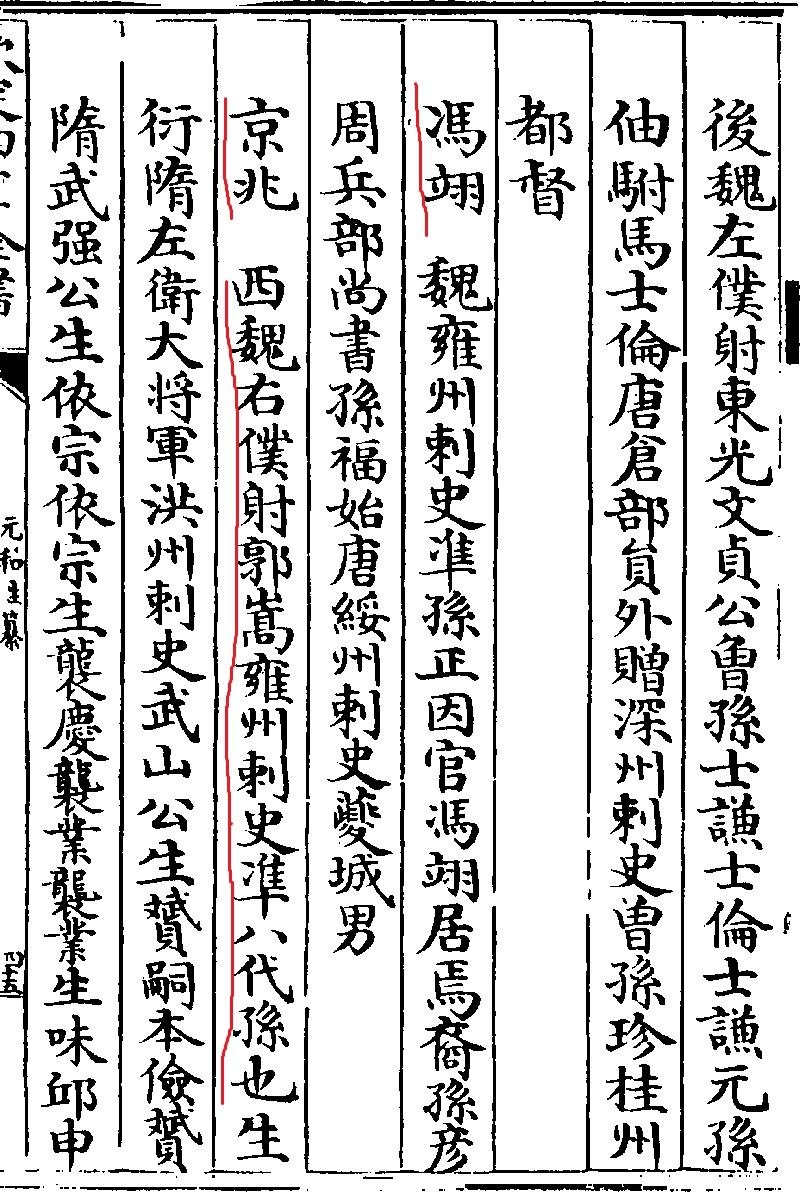 後魏左僕射東光文貞公曾孫士謙士倫士謙元孫
伷駙馬士倫唐倉部員外贈深州刺史曽孫珍桂州
都督
馮翊 魏雍州刺史凖孫正因官馮翊居焉裔孫彦
周兵部尚書孫福始唐綏州刺史夔城男
京兆 西魏右僕射郭嵩雍州刺史凖八代孫也生
衍隋左衛大将軍洪州刺史武山公生贇嗣本儉贇
隋武强公生依宗依宗生襲慶襲業襲業生味邱申
元和姓纂
四十五